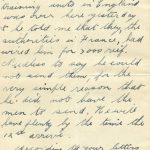 training units in England
was over here yesterday
& he told me that they, the
authorities in France, had
wired him for 3000 reif.
Needless to say he could
not send them for the
very simple reason that
he did not have the
men to send, It would
have plenty by the time the
12th arrives.
According to your letters